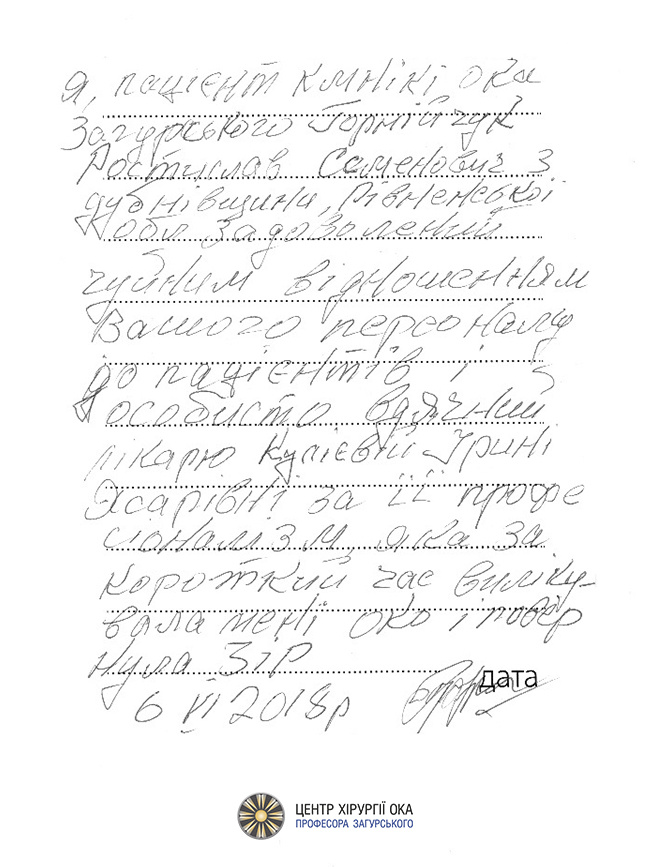 Я, пацієнт клінікі ока
Загурського Горнійчук
Ростислав Семенович з
дубнівщини, Рівненської
обл задоволений
чуйним відношенням
Вашого персоналу
до пацієнтів і
особисто вдячний
лікарю Кулієвій Ірині
Ясарівні за її профе
сіоналізм, яка за
короткий час виліку-
вала мені око і повер
нула Зір
дата
6 VI 2018р
ЦЕНТР ХІРУРГІЇ ОКА
ПРОФЕСОРА ЗАГУРСЬКОГО